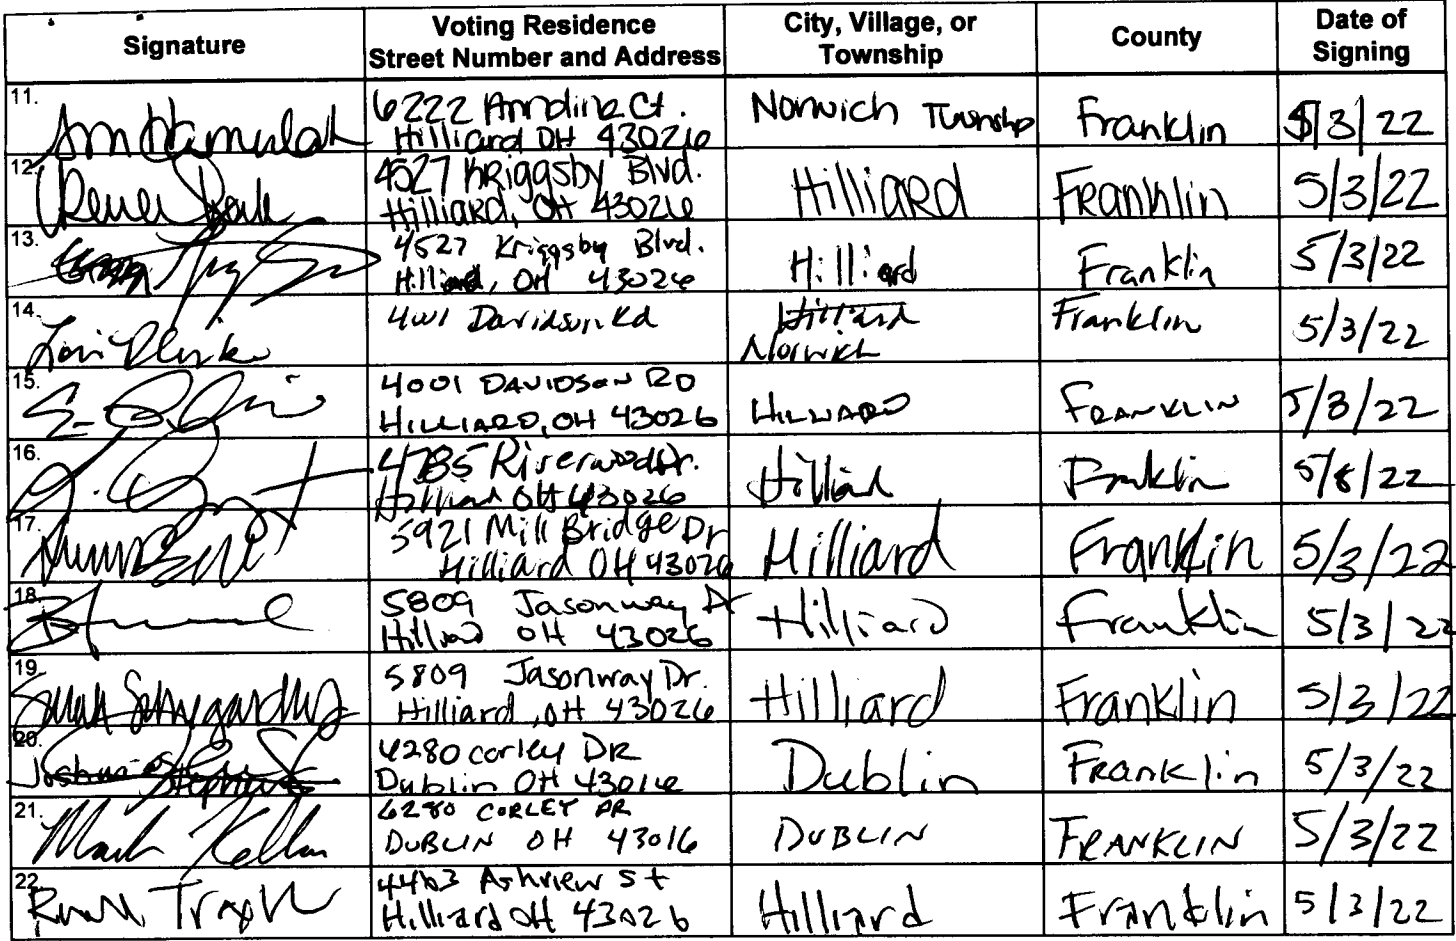 Signature
Voting Residence
Street Number and Address
City, Village, or
Township
County
Date of
Signing
11.
6222 Anndina Ct.
Hilliard OH 43026
Norwich Township
Franklin
5/3/22
12.
4527 KRiggsby Blvd.
Hilliard, OH 43026
HilliaRd
Franklin
5/3/22
13.
4527 Kriggsby Blvd.
Hilliard, OH 43026
Hilliard
Franklin
5/3/22
14.
Davidson Rd
Hilliard
Norwich
Franklin
5/3/22
15.
4001 DAVIDSON RD
HILLIARD, OH 43026
HILLIARD
FRANKLIN
5/3/22
16.
4785 Riverwood Dr.
Hilliard OH 43026
Hilliard
Franklin
22
17.
5921 Mill Bridge Dr
Hilliard OH 43026
Hilliard
Franklin
5/3/22
18.
5809 Jasonway Dr
Hilliard OH 43026
Hilliard
Franklin
5/3/22
19.
5809 Jasonway Dr.
Hilliard, OH 43026
Hilliard
Franklin
5/3/22
20.
Joshua Stephens
6280 corley DR
Dublin OH 43016
Dublin
FRanklin
5/3/22
21.
Mark Kellan
6280 CORLEY DR
DUBLIN OH 43016
DUBLIN
FRANKLIN
5/3/22
22.
4463 Ashview St
Hilliard OH 43026
Hilliard
Franklin
5/3/22